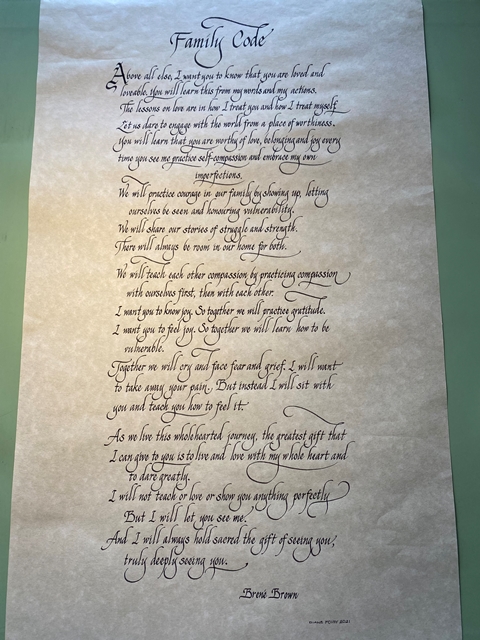 Family Code
Above all else, I want you to know that you are loved and
loveable. You will learn this from my words and my actions.
The lessons on love are in how I treat you and how I treat myself.
Let us dare to engage with the world from a place of worthiness.
You will learn that you are worthy of love, belonging and joy every
time you see me practice self-compassion and embrace my own
imperfections.
We will practice courage in our family by showing up, letting
ourselves be seen and honouring vulnerability.
We will share our stories of struggle and strength.
There will always be room in our home for both.
We will teach each other compassion by practicing compassion
with ourselves first, then with each other.
I want you to know joy. So together we will practice gratitude.
I want you to feel joy. So together we will learn how to be
vulnerable.
Together we will cry and face fear and grief. I will want
to take away your pain. But instead I will sit with
you and teach you how to feel it.
As we live this wholehearted journey, the greatest gift that
I can give to you is to live and love with my whole heart and
to dare greatly.
I will not teach or love or show you anything perfectly
But I will let you see me.
And I will always hold sacred the gift of seeing you,
truly deeply seeing you.
Brené Brown
2021